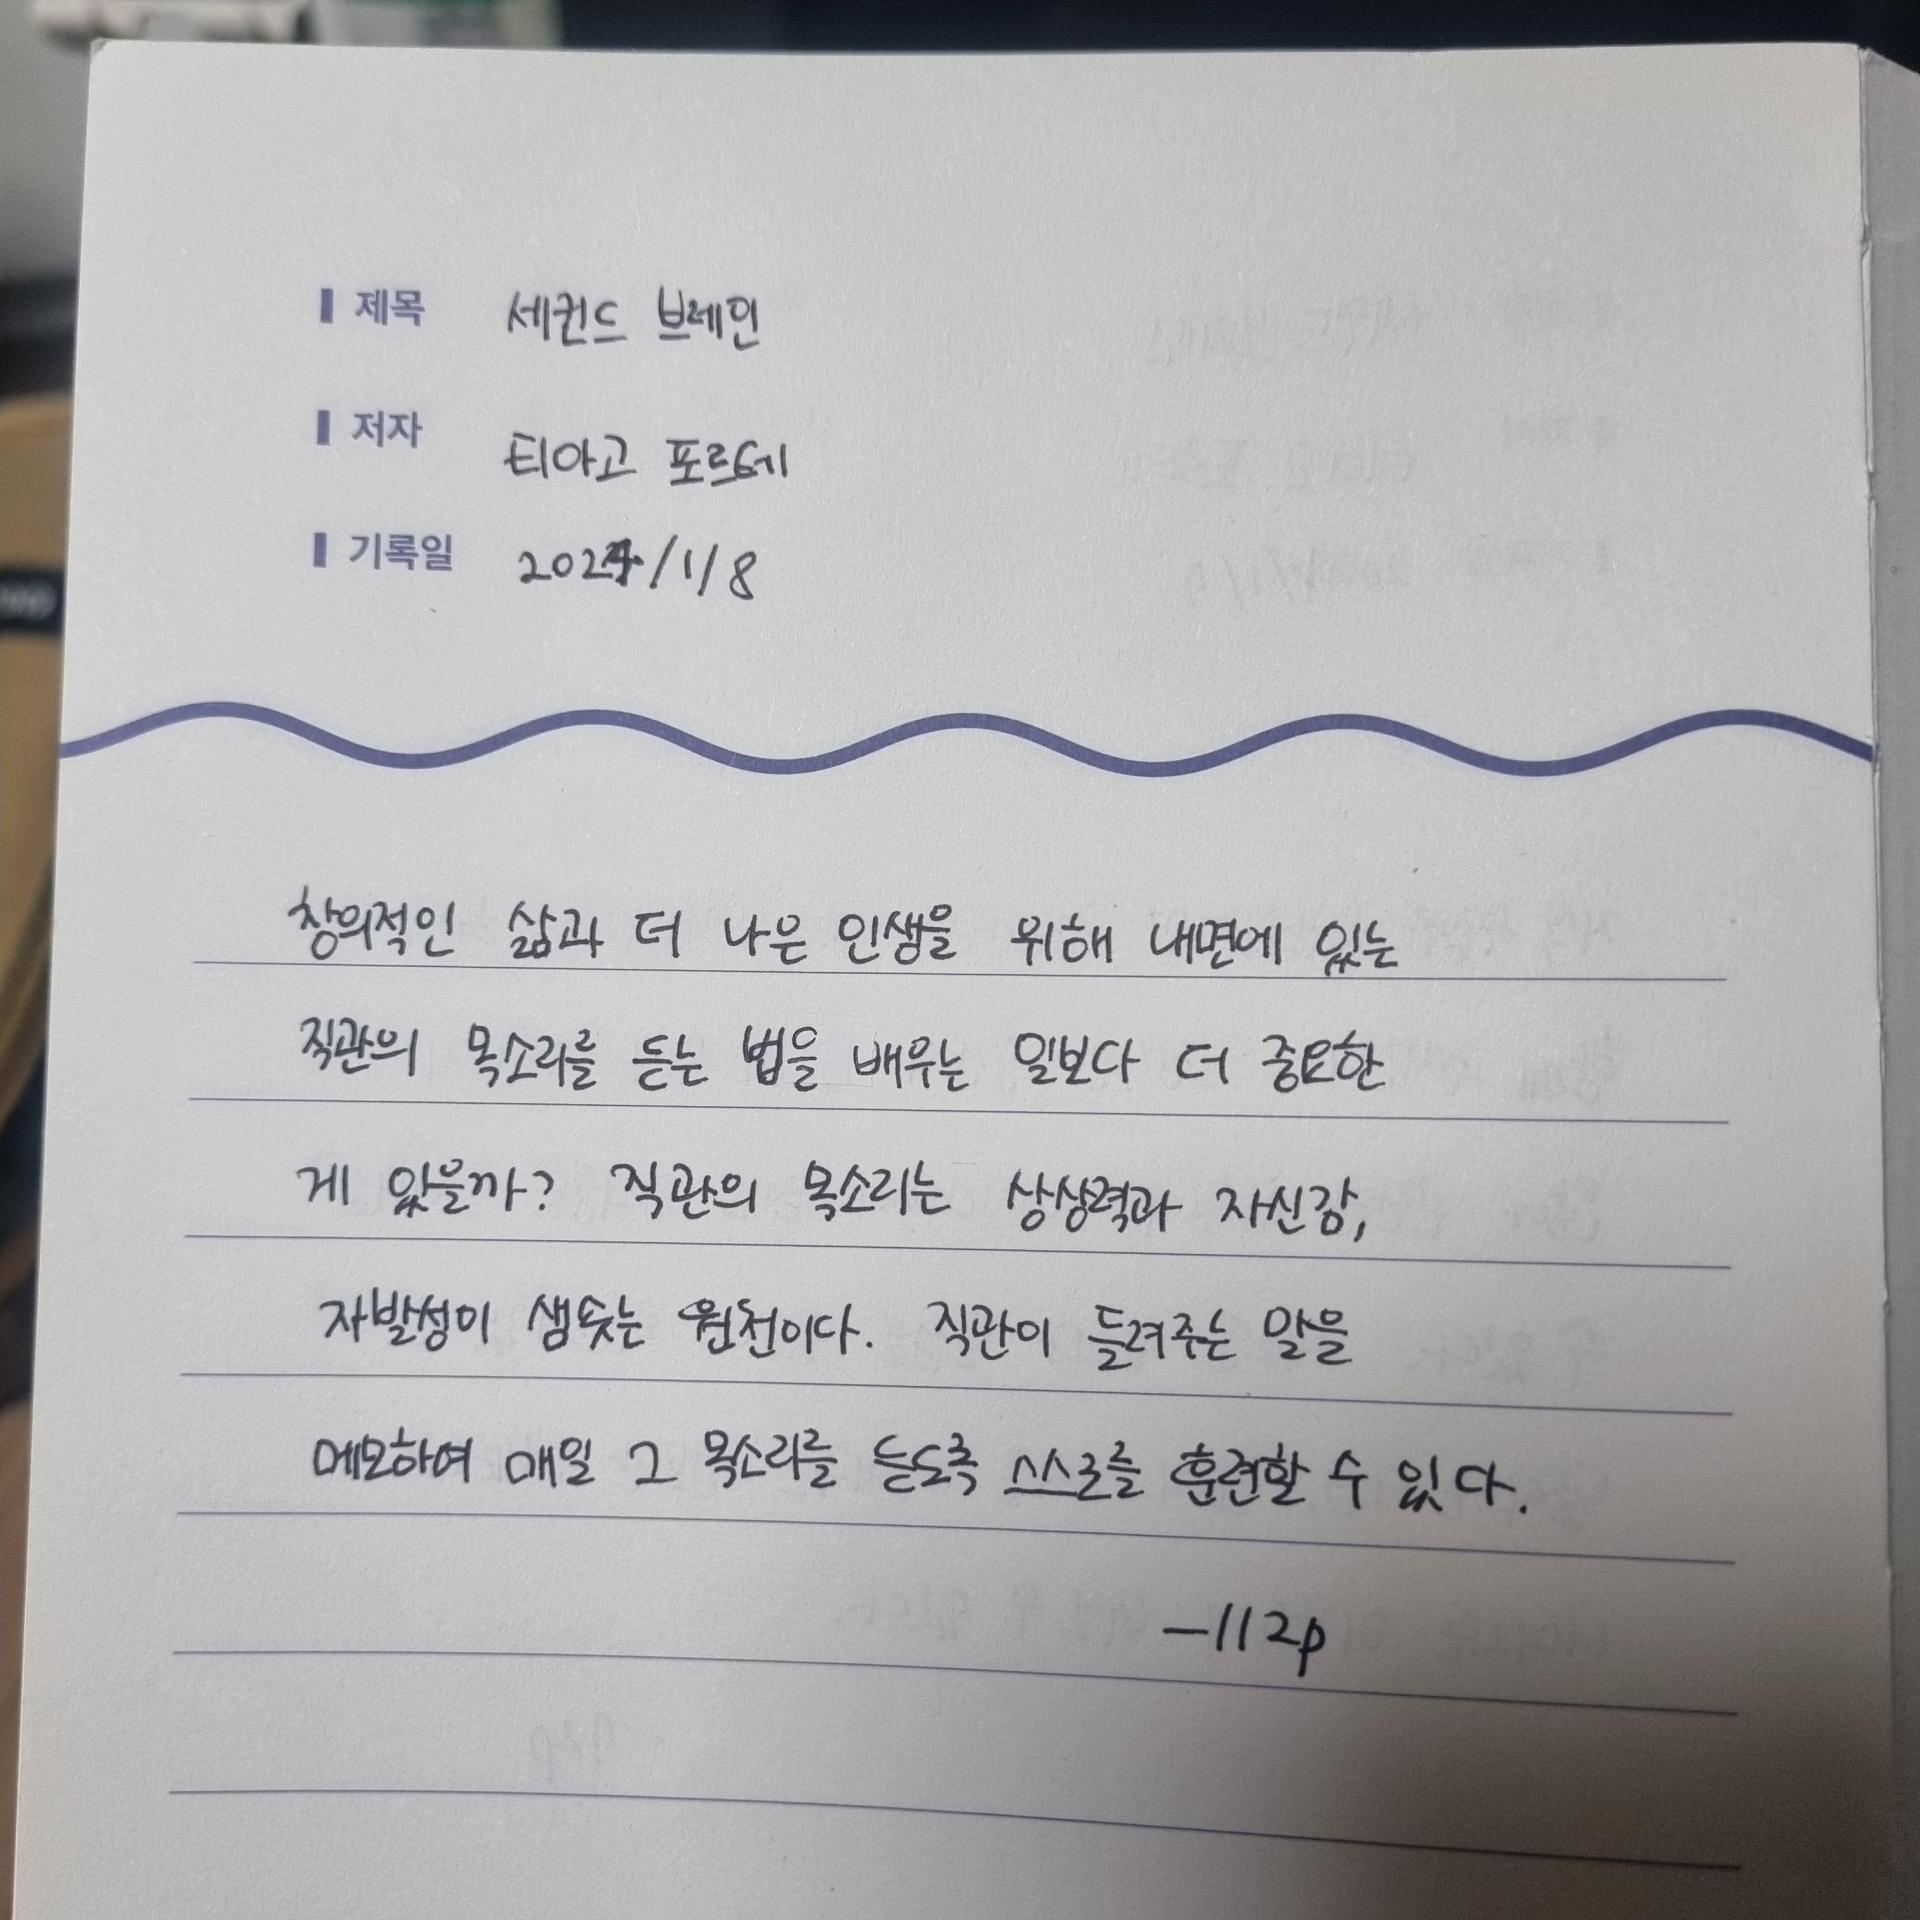 제목 세컨드 브레인
저자 티아고 포르테
기록일 2024/1/8
창의적인 삶과 더 나은 인생을 위해 내면에 있는
직관의 목소리를 듣는 법을 배우는 일보다 더 중요한
게 있을까? 직관의 목소리는 상상력과 자신감,
자발성이 샘솟는 원천이다. 직관이 들려주는 말을
메모하여 매일 그 목소리를 듣도록 스스로를 훈련할 수 있다.
-112p